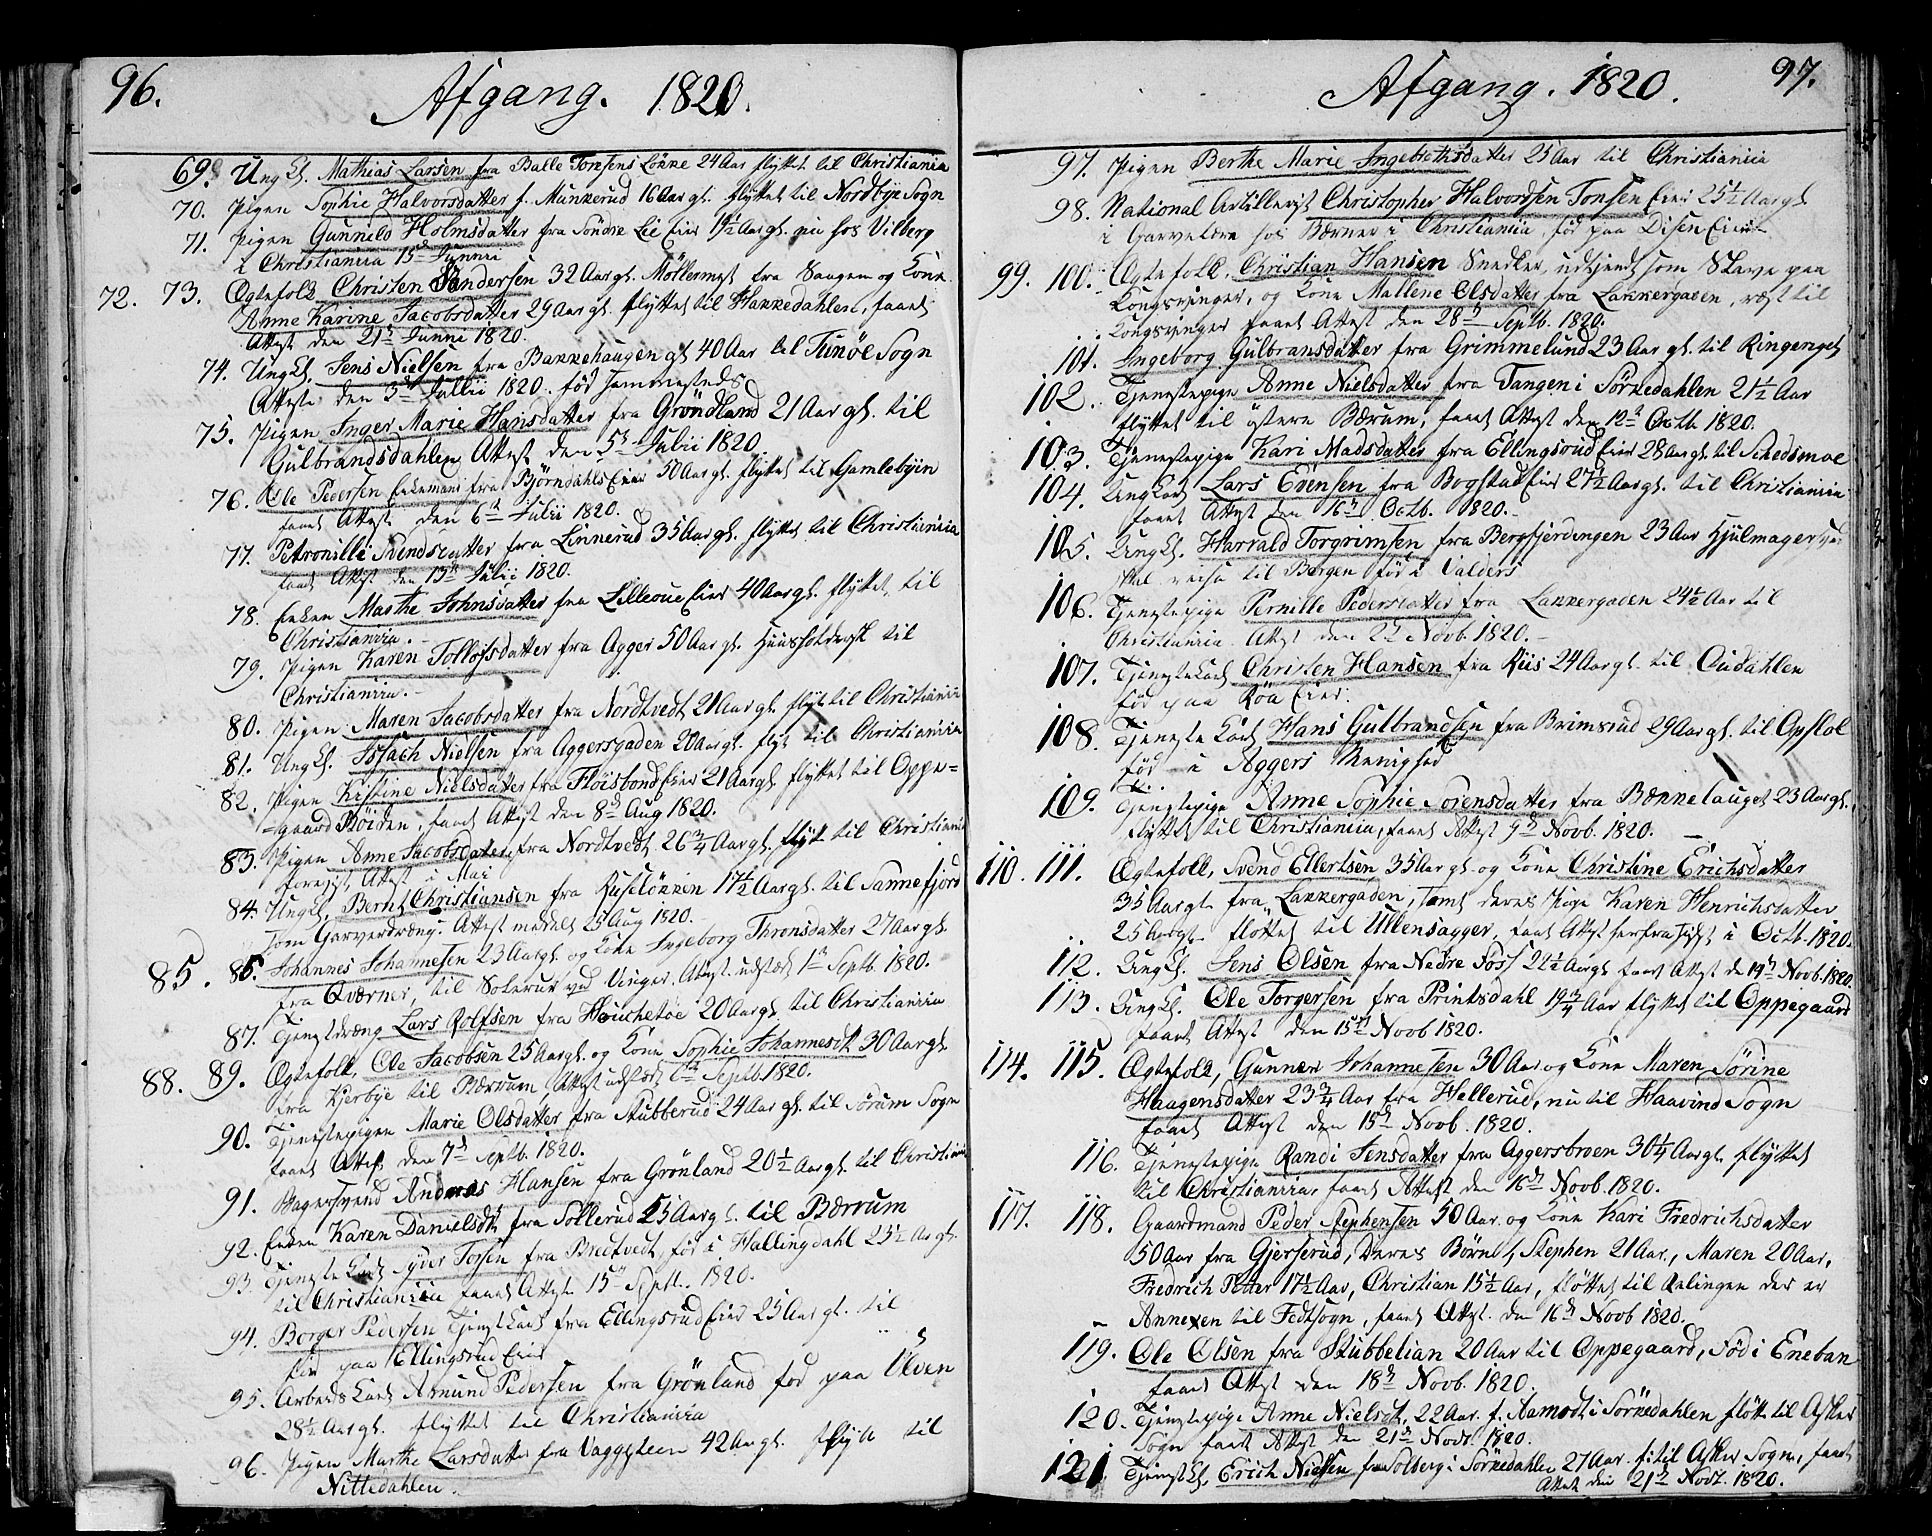 96.
Afgang. 1820.
69. UngK. Mathias Larsen fra Balle Torsens Løkke 24 Aar flyttet til Christiania
70. Pigen Sophie Halvorsdatter f. Munkerud 16 Aar gl. flyttet til Nordbye Sogn
71. Pigen Gunnild Holmsdatter fra Søndre Lie Eier Aar gl. nu hos Vilberg
i Christiania 15de Junii
72. 73. Ægtefolk Christen Andersen 32 Aar gl. Møllermest fra Saugen og Kone
Anne Karine Jacobsdatter 29 Aar gl. flyttet til Hakkedahlen, faaet
Attest den 21de Junii 1820.
74. UngK. Jens Nielsen fra Bakkehaugen gl. 40 Aar til Tunøe Sogn
Attest den 3de Julii 1820. fød sammesteds
75. Pigen Inger Marie Hansdatter fra Grøndland 21 Aar gl. til
Gulbrandsdahlen Attest den 5te Julii 1820.
76. Ole Pedersen Enkemand fra Bjørndahls Eier 50 Aar gl. flyttet til Gamlebyen
faaet Attest den 6te Julii 1820.
77. Petronille Svendsdatter fra Linnerud 35 Aar gl. flyttet til Christiania
faaet Attest den 13de Julii 1820.
78. Enken Marthe Johnsdatter fra Lilleoue Eier 40 Aar gl. flyttet til
Christiania.
79. Pigen Karen Tollofsdatter fra Agger 50 Aar gl. til
Christiania.
80. Pigen Maren Jacobsdatter fra Nordtvedt 21 Aar gl. flyt til Christiania
81. UngK. Issach Nielsen fra Aggersgaden 20 Aar gl. flyt til Christiania
82. Pigen Kistine Nielsdatter fra Fløisbond Eier 21 Aar gl. flyttet til Oppe-
-gaard Bøiden, faaet Attest den 8de Aug 1820.
83. Pigen Anne Jacobsdatter, fra Nordtvedt 26 3/4 Aar gl. flytt til Christiania
forevist Attest i Mai
84. UngK. Bernt Christiansen fra Ruseløkken 17 1/2 Aar gl. til Sannefjord
som Garverdreng. Attest meddelt 25 Aug 1820.
85. 86. Johannes Johannesen 23 Aar gl. og Kone Ingeborg Thronsdatter 27 Aar gl.
fra Qværner, til Solerud ved Vinger, Attest udstæd 1te Septb. 1820.
87. Tjenestdræng Lars Rolfsen fra Houchetøe 20 Aar gl. til Christiania
88. 89. Ægtefolk, Ole Jacobsen 25 Aar gl. og Kone Sophie Johannesdt 30 Aar gl.
fra Kjerbye til Bærrum, Attest udstæd 6te Septb. 1820.
90. Tjenestepigen Marie Olsdatter fra Stubberud 24 Aar gl. til Sørum Sogn
faaet Attest den 7de Septb. 1820.
91. Bagersvend Andreas Hansen fra Grønland 20 1/2 Aar gl. til Christiania
92. Enken Karen Danielsdt. fra Sollerud 25 Aar gl. til Bærrum
93. Tjeneste Karl Syver Torsen fra Bredtvedt, fød i Hallingdahl 25 1/2 Aar gl.
til Christiania faaet Attest 15de Septb. 1820.
94. Borger Pedersen Tjenest Karl fra Ellingsrud Eier 25 Aar gl. til
fød paa Ellingsrud Eier
95. Arbeids Karl Asmund Pedersen fra Grønland fød paa Ulven
28 1/2 Aar gl. flyttet til Christiania
96. Pigen Marthe Larsdatter fra Vaggesteen 42 Aar gl. flytt til
Nittedahlen.
97.
Afgang. 1820.
97. Pigen Berthe Marie Ingebrethsdatter 25 Aar til Christiania
98. National Artillerist Christopher Halvordsen Tonsen Eier 25 1/2 Aar gl.
i Garvelære hos Bærner i Christiania, fød paa Disen Eier
99. 100. Ægtefolk, Christian Hansen Snedker, udtjendt som Slave paa
Kongsvinger, og Kone Mallene Olsdatter fra Lakkergaden, reist til
Kongsvinger faaet Attest den 28de Septb. 1820.
101. Ingeborg Gulbransdatter fra Grimmelund 23 Aar gl. til Ringeriget
102. Tjenestepige Anne Nielsdatter fra Tangen i Sørkedahlen 21 1/2 Aar
flyttet til østere Bærum, faaet Attest den 12te Octb. 1820.
103. Tjenestepige Kari Madsdatter fra Ellingsrud Eier 28 Aar gl. til Schedsmoe
104. Ung Karl Lars Evensen fra Bogstad Eier 27 1/2 Aar gl. til Christiania
faaet Attest den 16de Octb. 1820.
105. UngK. Harrald Torgrimsen fra Bergfjerdingen 23 Aar Hjulmagersvend
skal reise til Bergen fød i Valders
106. Tjenestepige Pernille Pedersdatter fra Lakkergaden 24 1/2 Aar til
Christiania Attest den 2de Novb. 1820.
107. Tjeneste Karl Christen Hansen fra Riis 24 Aar gl. til Oudahlen
fød paa Røa Eier.
108. Tjeneste Karl Hans Gulbrandsen fra Brimsrud 29 Aar gl. til Opslol
fød i Aggers Menighed
109. Tjenestepige Anne Sophie Sørensdatter fra Bækkelauget 23 Aar gl.
flyttet til Christiania, faaet Attest 9de Novb. 1820.
110. 111. Ægtefolk, Svend Ellertsen 35 Aar gl. og Kone Christine Erichsdatter
35 Aar gl. fra Lakkergaden, samt deres Pige Karen Henrichsdatter
25 Aar gl. fløttet til Ullensagger, faaet Attest herfra sidst i Octb. 1820.
112. UngK. Jens Olsen fra Nedre Foss 22 1/2 Aar gl. faaet Attest d. 14de Novb. 1820.
113. UngK. Ole Torgersen fra Printsdahl 19 3/4 Aar flyttet til Oppegaard
faaet Attest den 15de Novb 1820.
114. 115. Ægtefolk, Gunner Johannesen 30 Aar og Kone Maren Sørine
Haagensdatter 23 3/4 Aar fra Hellerud, nu til Haavind Sogn
faaet Attest den 15de Novb. 1820.
116. Tjenestepige Randi Jensdatter fra Aggersbroen 30 1/4 Aar gl. flyttet
til Christiania, faaet Attest den 16de Novb. 1820.
117. 118. Gaardmand Peder Stephensen 50 Aar og Kone Kari Fredrichsdatter
50 Aar fra Gjerserud, Deres Børn, Stephen 21 Aar., Maren 20 Aar,
Fredrich Petter 17 1/2 Aar, Christian 15 1/2 Aar, fløttet til Rælingen der er
Annexen til Fedtsogn, faaet Attest den 16de Novb 1820.
119. Ole Olsen fra Stubbelian 20 Aar til Oppegaard, Fød i Eneban
faaet Attest den 18de Novb. 1820.
120. Tjenestepige Anne Nielsdt. 22 Aar. f. Aamodt i Sørkedahlen fløtt til Asker
Sogn faaet Attest den 21de Novb. 1820.
121. TjenestK. Erich Nielsen fra Solberg i Sørkedahlen 27 Aar. f. til Asker Sogn, faaet
Attest den 21de Novb. 1820.